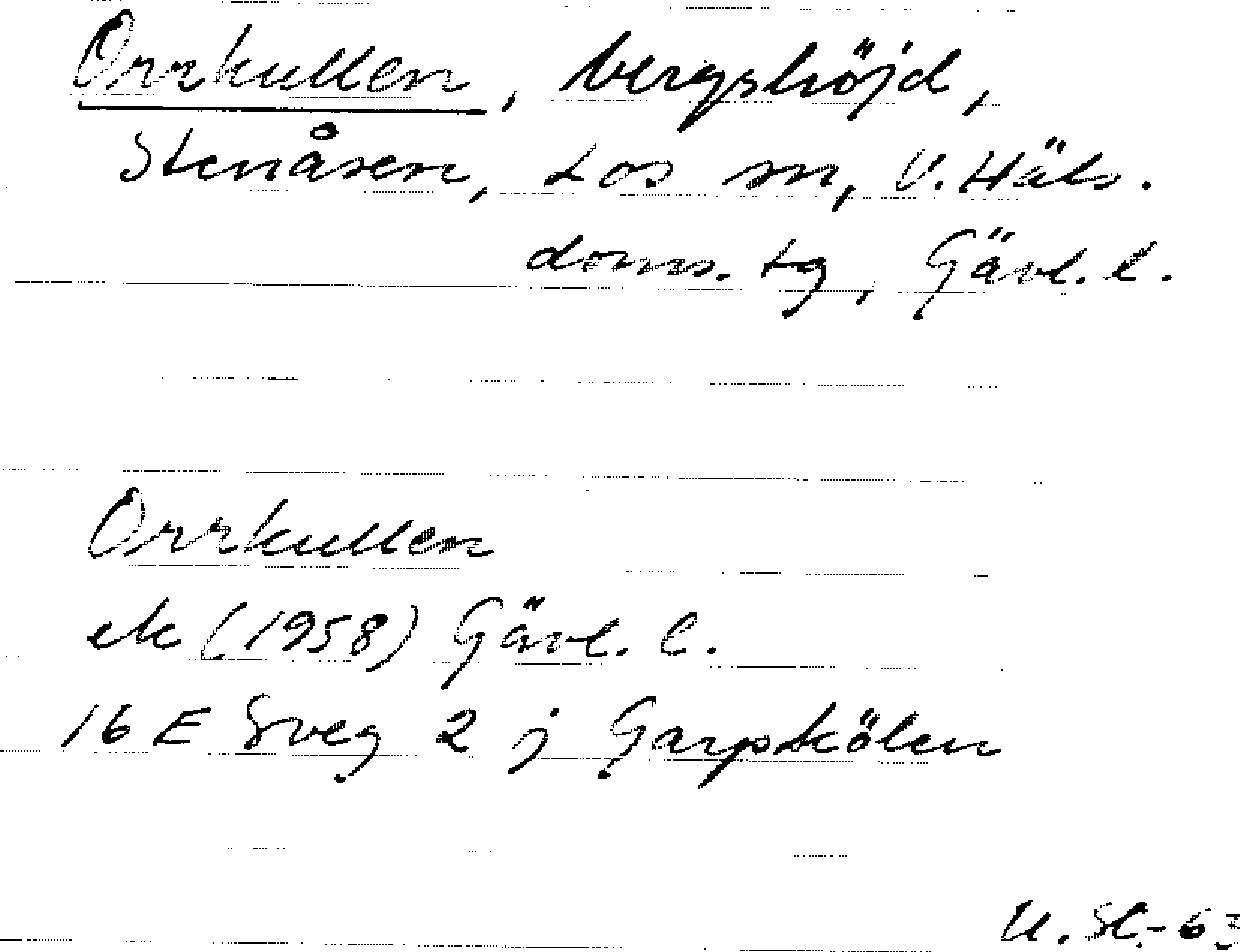 Orrkullen, bergshöjd,
Stenåsen, Los sn, V. Häls.
doms. tg, Gävl. l.
Orrkullen
ek (1958) Gävl. l.
16 E Sveg 2 j Garpkölen
U. St. -63